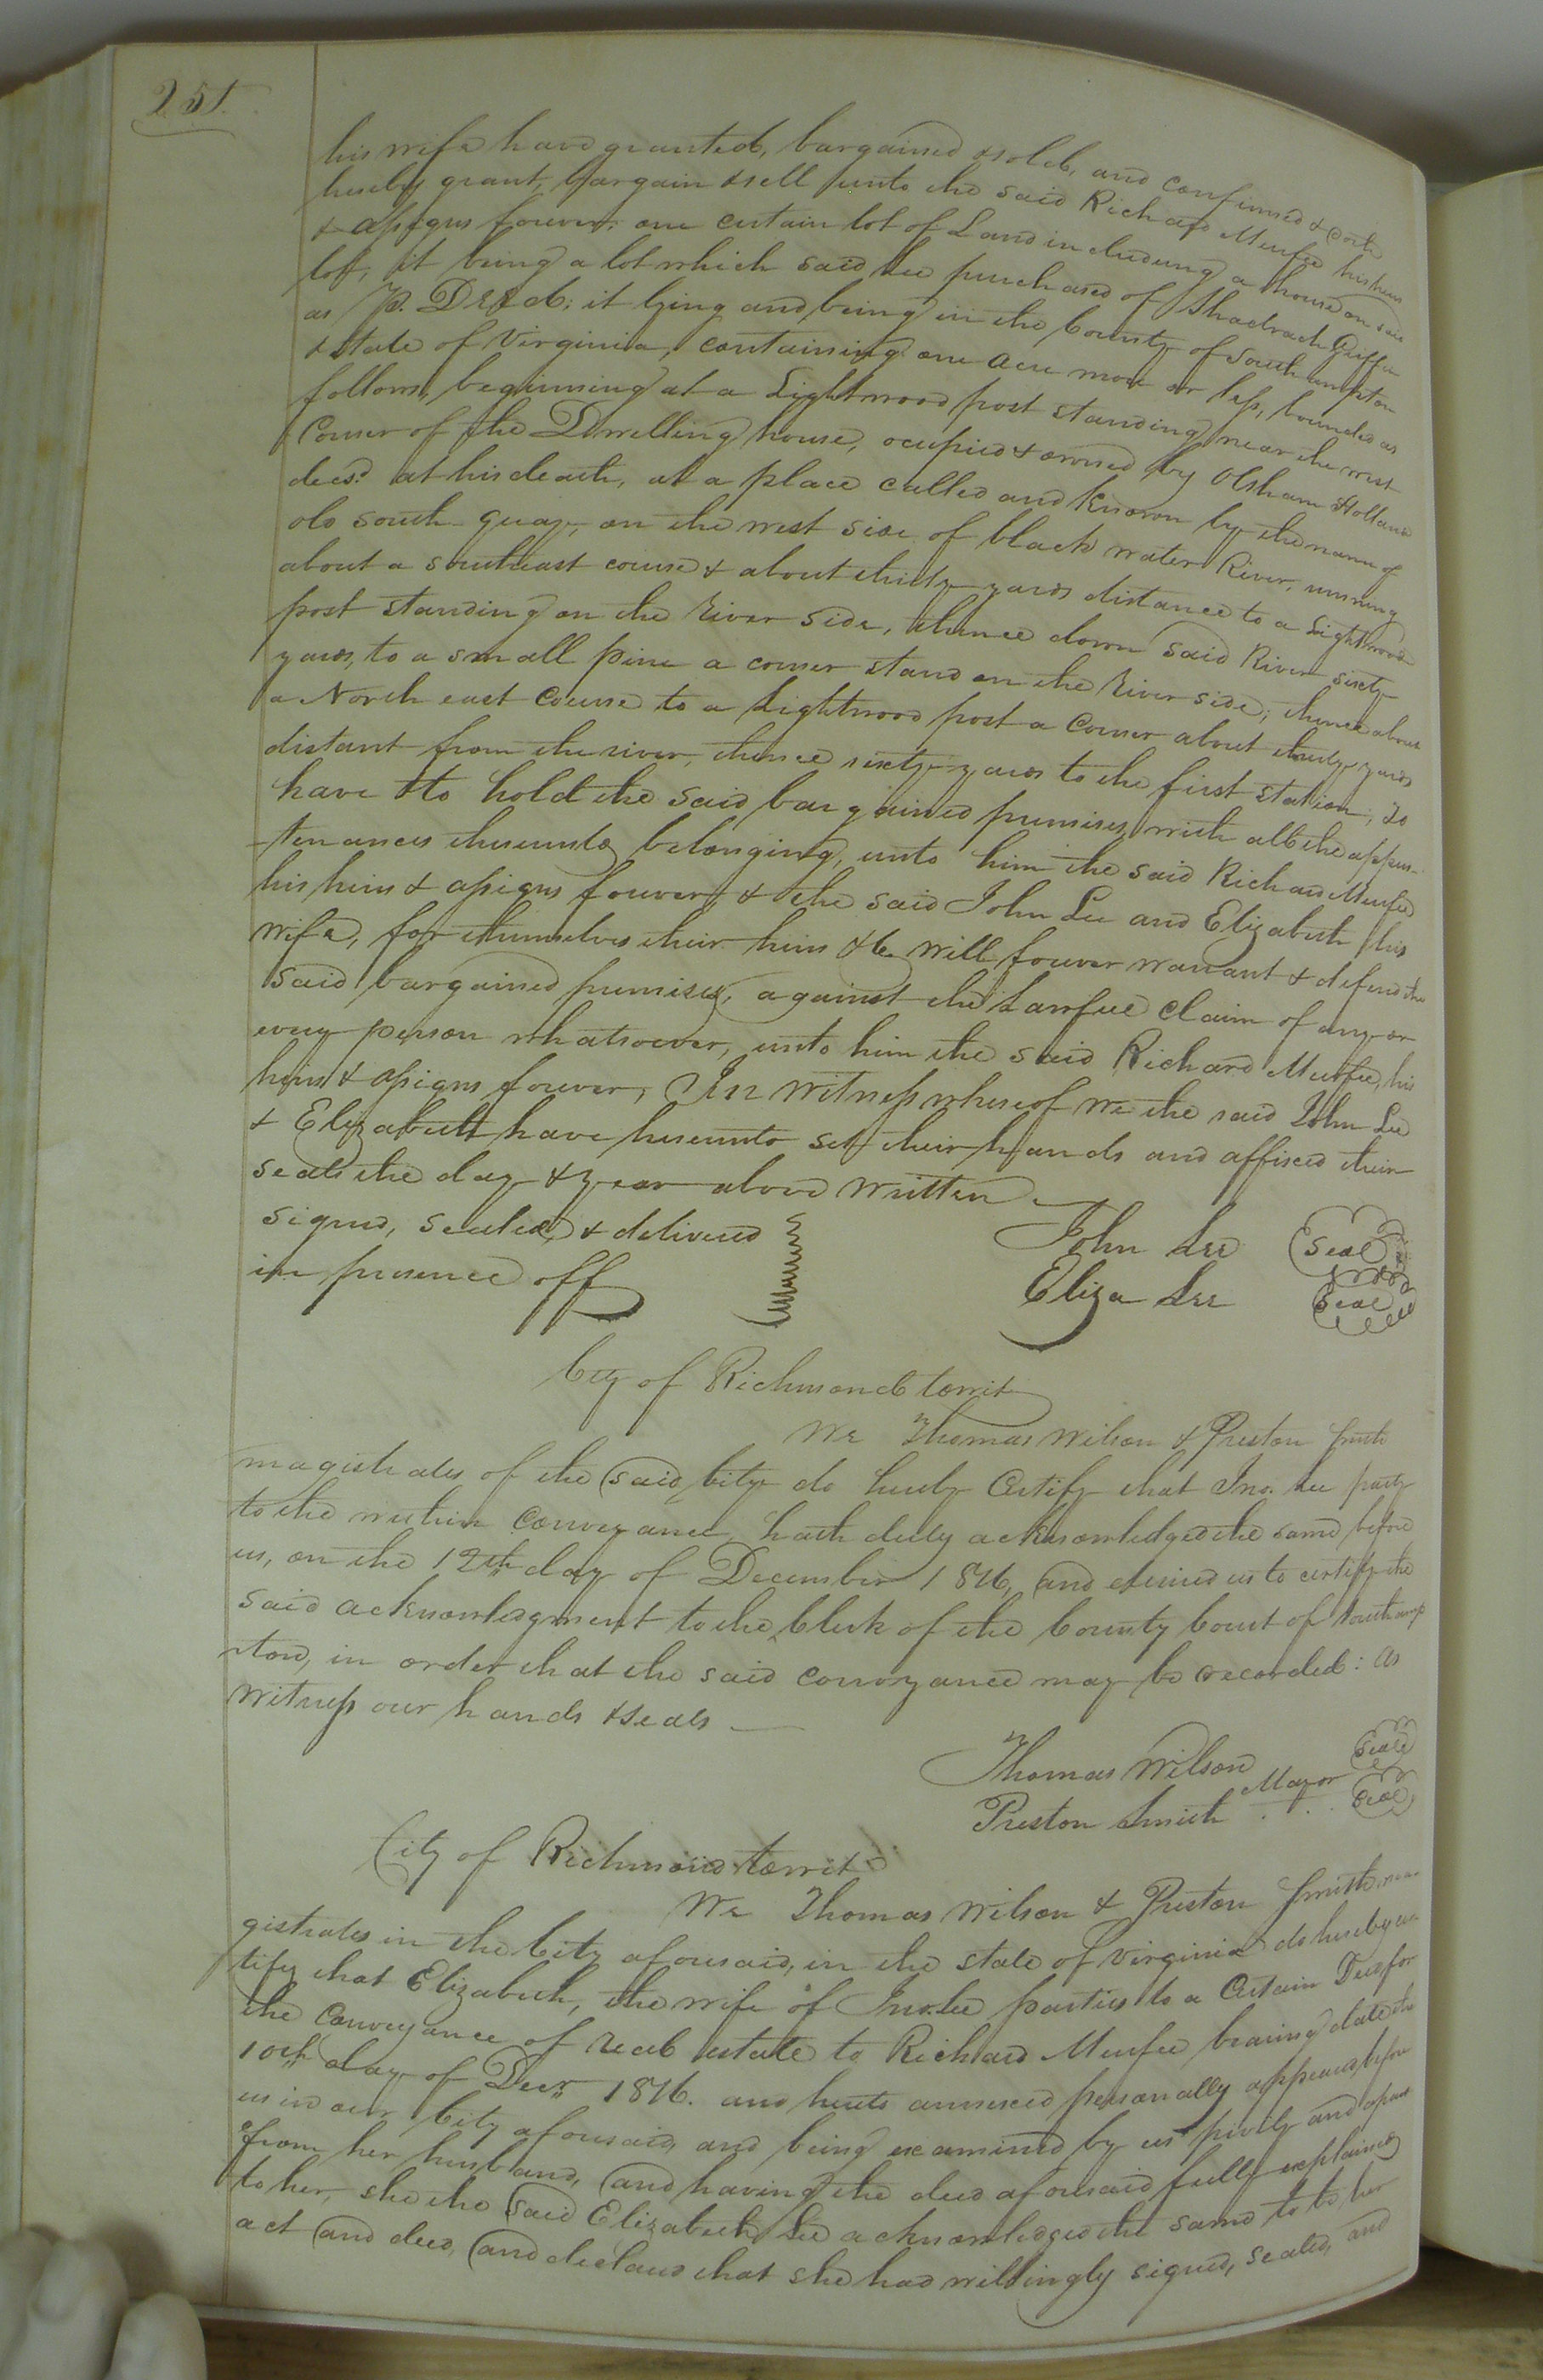 251.
his wife have granted, bargained & sold, and confirmed & doth
hereby grant, bargain & sell unto the said Richard Murfee his heirs
& assigns forever, one certain lot of Land including a house on said
lott, it being a lot which said Lee purchased of Shadrach Griffin
as p. Deed; it lying and being in the County of Southampton
& State of Virginia, containing one acre more or less, bounded as
follows, beginning at a Lightwood post standing near the west
Corner of the Dwelling house, ocupied & owned by Olsham Holland
decsd. at his death, at a place called and known by the name of
old south quay, on the west side of black water River, running
about a southeast course & about thirty yards distance to a Lightwood
post standing on the River side, thence down said River sixty
yards, to a small pine a corner stand on the River side; thence about
a North east Course to a Lightwood post a Corner about thirty yards
distant from the river, thence sixty yards to the first station; To
have & to hold the said bargained premises, with all the appur-
tenances thereunto belonging, unto him the said Richard Murfee
his heirs & assigns forever, & the said John Lee and Elizabeth his
wife, for themselves their heirs &c. will forever warrant & defend the
said bargained premises, against the Lawful claim of any or
every person whatsoever, unto him the said Richard Murfee, his
heirs & assigns forever, In witness whereof we the said John Lee
& Elizabeth have hereunto set their hands and affixed their
seals the day & year above written
signed, sealed & delivered
in presence off
John Lee Seal
Eliza Lee Seal
City of Richmond towit
We Thomas Wilson & Preston Smith
magistrates of the said City do hereby Certify that Jno. Lee party
to the within Conveyance, hath duly acknowledged the same before
us, on the 12th day of December 1816, and desired us to certify the
said acknowledgment to the Clerk of the County Court of Southamp
ton, in order that the said conveyance may be recorded: As
witness our hands & seals
Thomas Wilson Mayor Seal
Preston Smith Seal
City of Richmond towit
We Thomas Wilson & Preston Smith, ma
gistrates in the City aforesaid, in the state of Virginia do hereby cer
tify that Elizabeth, the wife of Jno. Lee parties to a Certain Deed for
the Conveyance of real estate to Richard Murfee bearing date the
10th day of Decr. 1816. and hereto annexed personally appeared before
us in our City aforesaid, and being examined by us privily and apart
from her husband, and having the deed aforesaid fully explained
to her, she the said Elizabeth Lee acknowledged the same to be her
act and deed, and declared that she had willingly signed, sealed, and